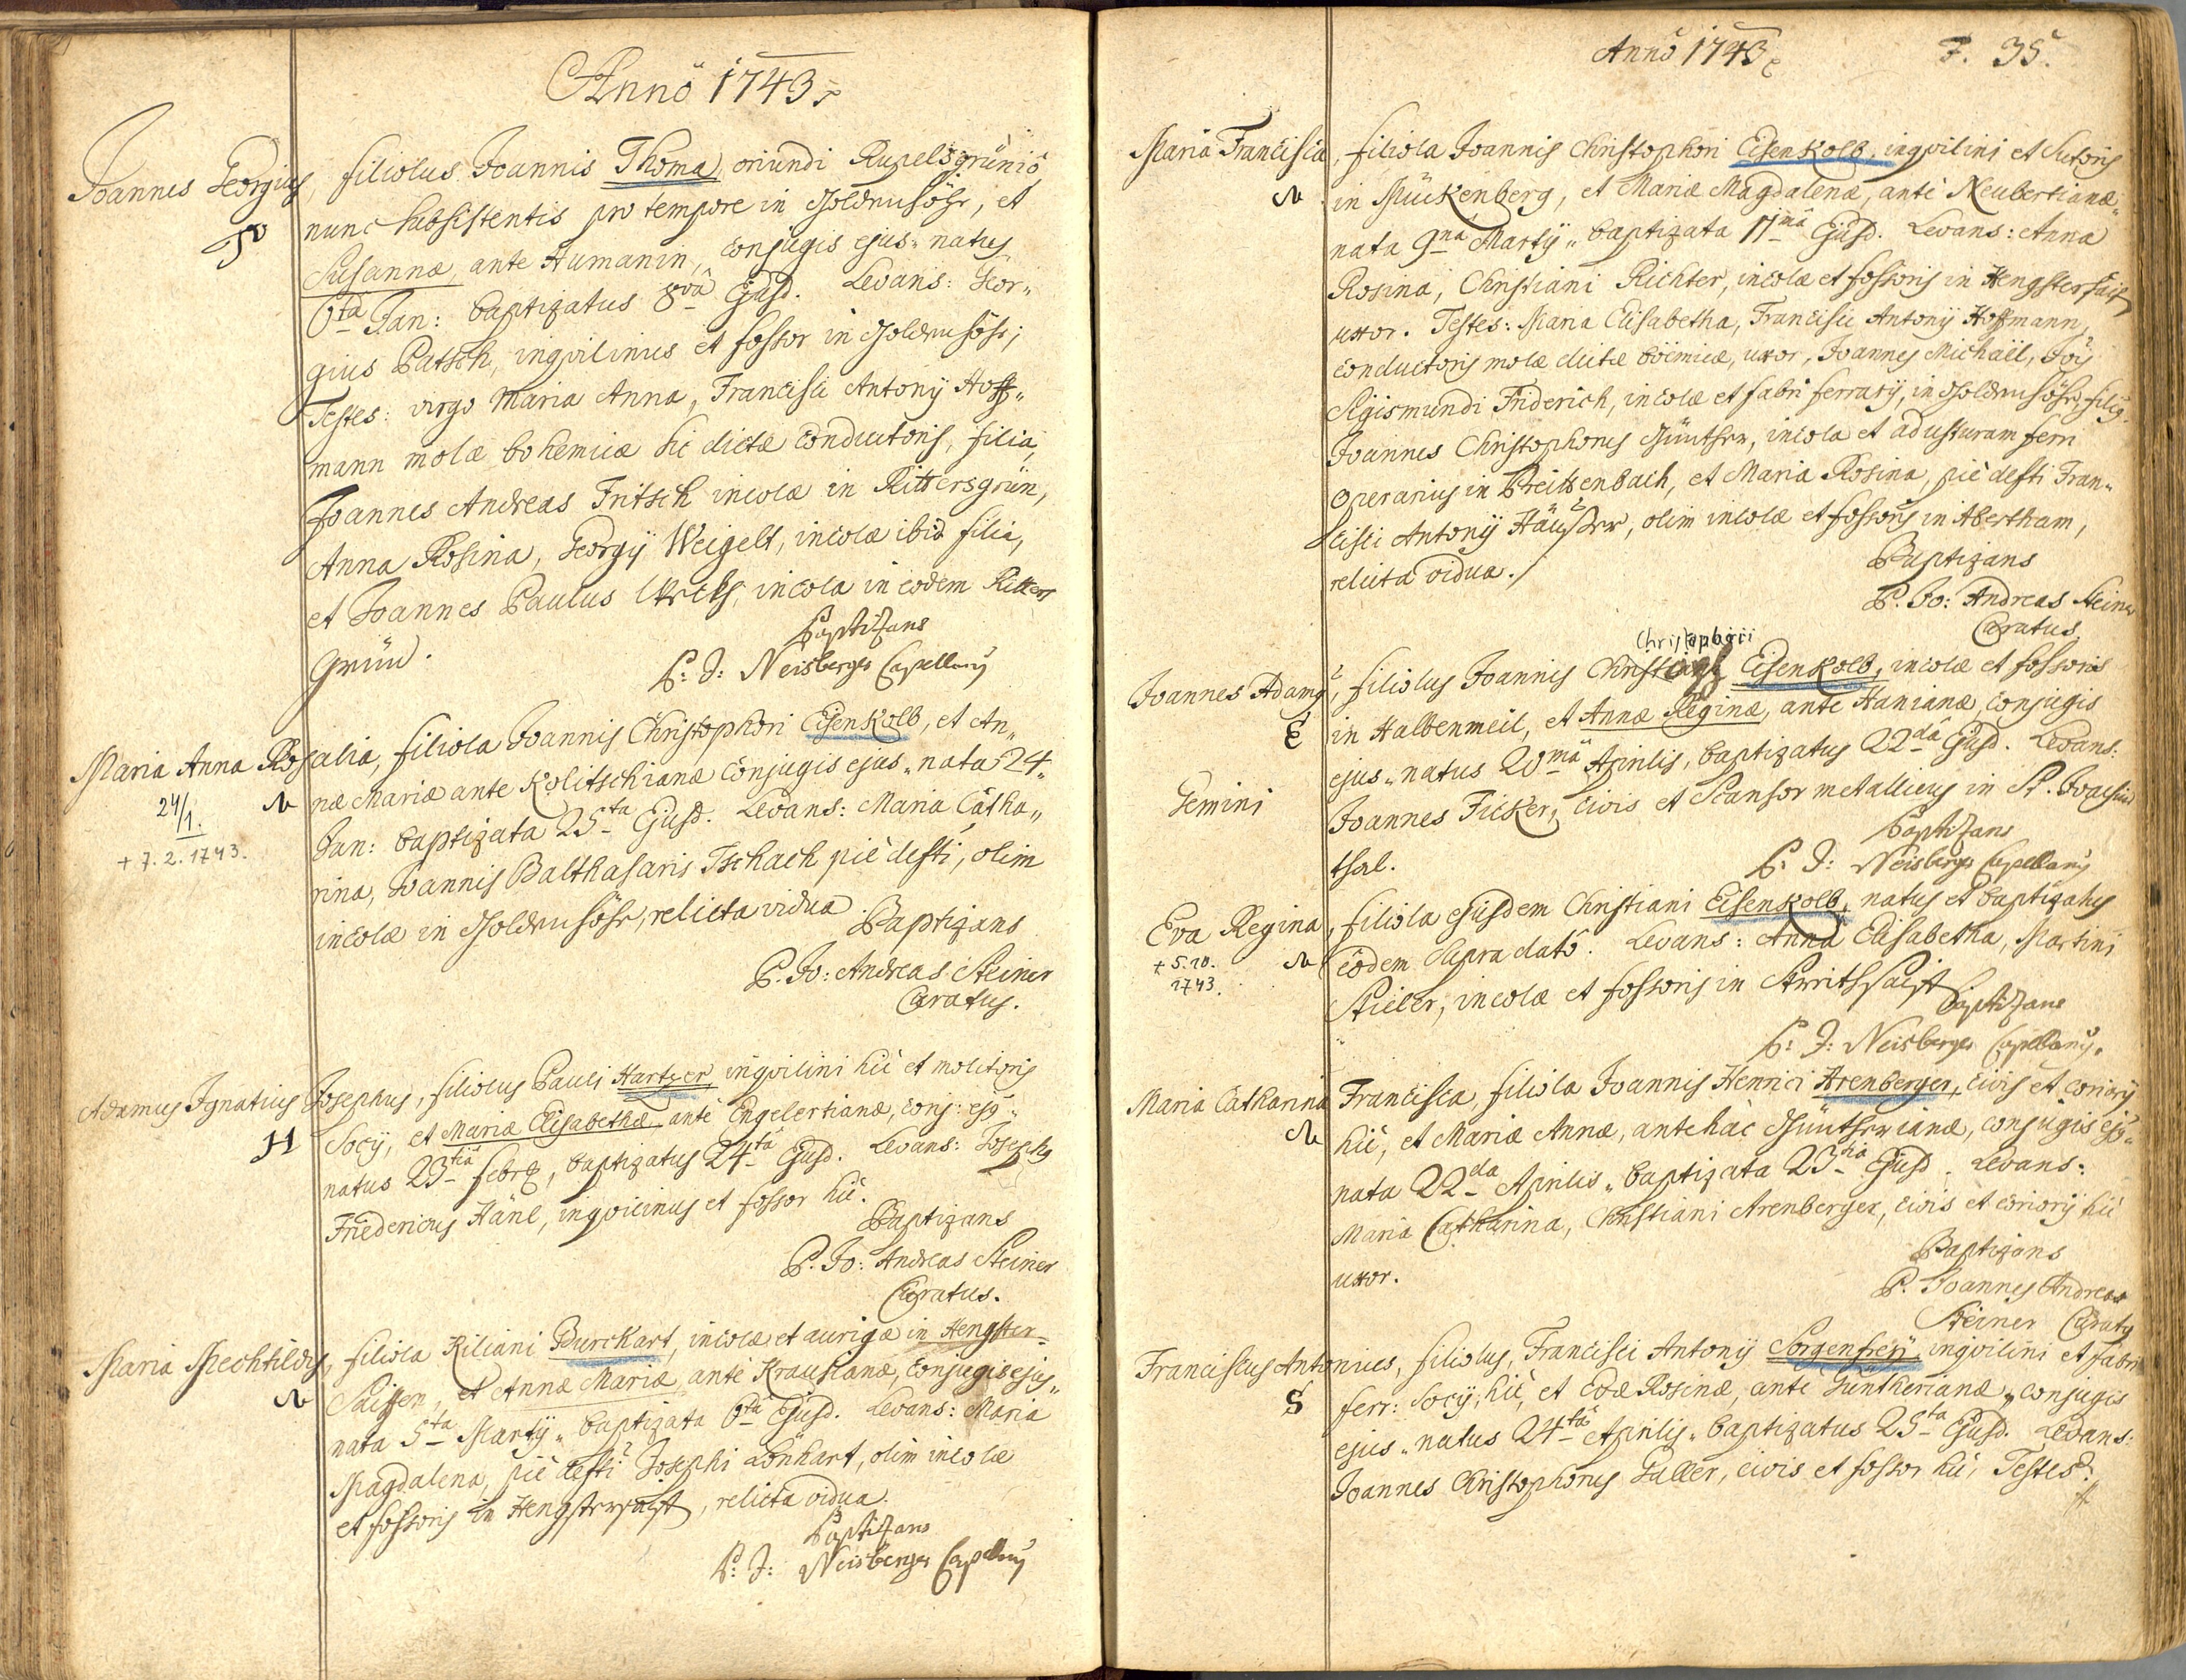 Anno 1743
Joannes Georgius, filiolus Joannis Thoma, oriundi Rupelsgrünio
nunc subsistentis pro tempore in Goldenhöhe, et
Susannæ, ante Humanin, conjugis ejus, natus
6ta Jan: baptizatus 8va Ejusd. Levans: Geor„
gius Patsch, inqvilinus et fossor in Goldenhöhe;
Testes: virgo Maria Anna, Francisci Antonij Hoff„
mann molæ bohemicæ hic dictæ conductoris, filia,
Joannes Andreas Fritsch incola in Rittersgrün,
Anna Rosina, Georgij Weigelt, incolæ ibid filia,
et Joannes Paulus incola in eodem Ritters
grün.
Baptizans
P: J: Neisberger Capellanus
Maria Anna Rosalia, filiola Joannis Christophori Eisenkolb, et An„
24/1. N næ Mariæ ante Kolitschianæ conjugis ejus„ nata 24„
+ 7. 2. 1743. Jan: baptizata 25ta Ejusd. Levans: Maria Catha„
rina, Joannis Balthasaris Tschach piè defti, olim
incolæ in Goldenhöhe, relicta vidua
Baptizans
P. Jo: Andreas Steiner
Curatus.
Adamus Ignatius Josephus, filiolus Pauli Hartzer, inqvilini hic et molitoris
H Socij, et Mariæ Elisabethæ ante Engelertianæ, conj: ejs„
natus 23tia febr, baptizatus 24ta Ejusd. Levans: Josephus
Friedericus Hänl, inqvilinus et fossor hic.
Baptizans
P. Jo: Andreas Steiner
Curatus.
Maria Mechtildis, filiola Kiliani Burckart, incolæ et aurigæ in Hengster-
N Saiffen, et Annæ Mariæ ante Krausianæ, conjugis ejus„
nata 5ta Martij„ baptizata 6ta Ejusd. Levans: Maria
Magdalena, piè defti Josephi Lönhart, olim incolæ
et fossoris in Hengstersaiff, relicta vidua.
Baptizans
P: J: Neisberger Capellanus
Anno 1743
F. 35.
Maria Francisca, filiola Joannis Christophori Eisenkolb, inqvilini et Sutoris
N in Mückenberg, et Mariæ Magdalenæ, ante Neubertianæ„
nata 9na Martij„ baptizata 11ma Ejusd. Levans: Anna
Rosina, Christiani Richter, incolæ et fossoris in Hengstersaiff
uxor. Testes: Maria Elisabetha, Francisci Antonij Hoffmann,
conductoris molæ dictæ böemicæ, uxor, Joannes Michaël, Jois
Sigismundi Friderich, incolæ et fabri ferrarij, in Goldenhöhe, filig.
Joannes Christophorus Günther, incola et ad usturam ferri
operarius in Breitenbach, et Maria Rosina, piè defti Fran„
cisci Antonij Häusler, olim incolæ et fossoris in Abertham,
relicta vidua.
Baptizans
P. Jo: Andreas Steiner
Curatus
Christophori
Joannes Adamus, filiolus Joannis Christoph Eisenkolb, incolæ et fossoris
E in Halbenmeil, et Annæ Reginæ, ante Hanianæ, conjugis
ejus„ natus 20mä Aprilis, baptizatus 22da Ejusd. Levans:
Gemini Joannes Ficker, civis et Scansor metallicus in St. Joachims
thal.
Baptizans
P: J: Neisberger Capellanus
Eva Regina, filiola ejusdem Christiani Eisenkolb, natus et baptizatus
+ 5. 10. 1743. N eodem supra dato. Levans: Anna Elisabetha, Martini
Stieler, incolæ et fossoris in
Baptizans
P: J: Neisberger Capellanus.
Maria Catharina Francisca, filiola Joannis Henrici Arenberger, civis et coriarij
N hic, et Mariæ Annæ, antehac Güntherianæ, conjugis ejs„
nata 22da Aprilis„ baptizata 23tia Ejusd. Levans:
Maria Catharina, Christiani Arenberger, civis et coriarij hic
uxor.
Baptizans
P. Joannes Andreas
Steiner Curatus
Franciscus Antonius, filiolus, Francisci Antonij Sorgenfrey, inqvilini et fabri
S ferr: Socij, hic, et Evæ Rosinæ, ante Güntherianæ„ conjugis
ejus„ natus 24ta Aprilis„ baptizatus 25ta Ejusd. Levans:
Joannes Christophorus Galler, civis et fossor hic, Testes: